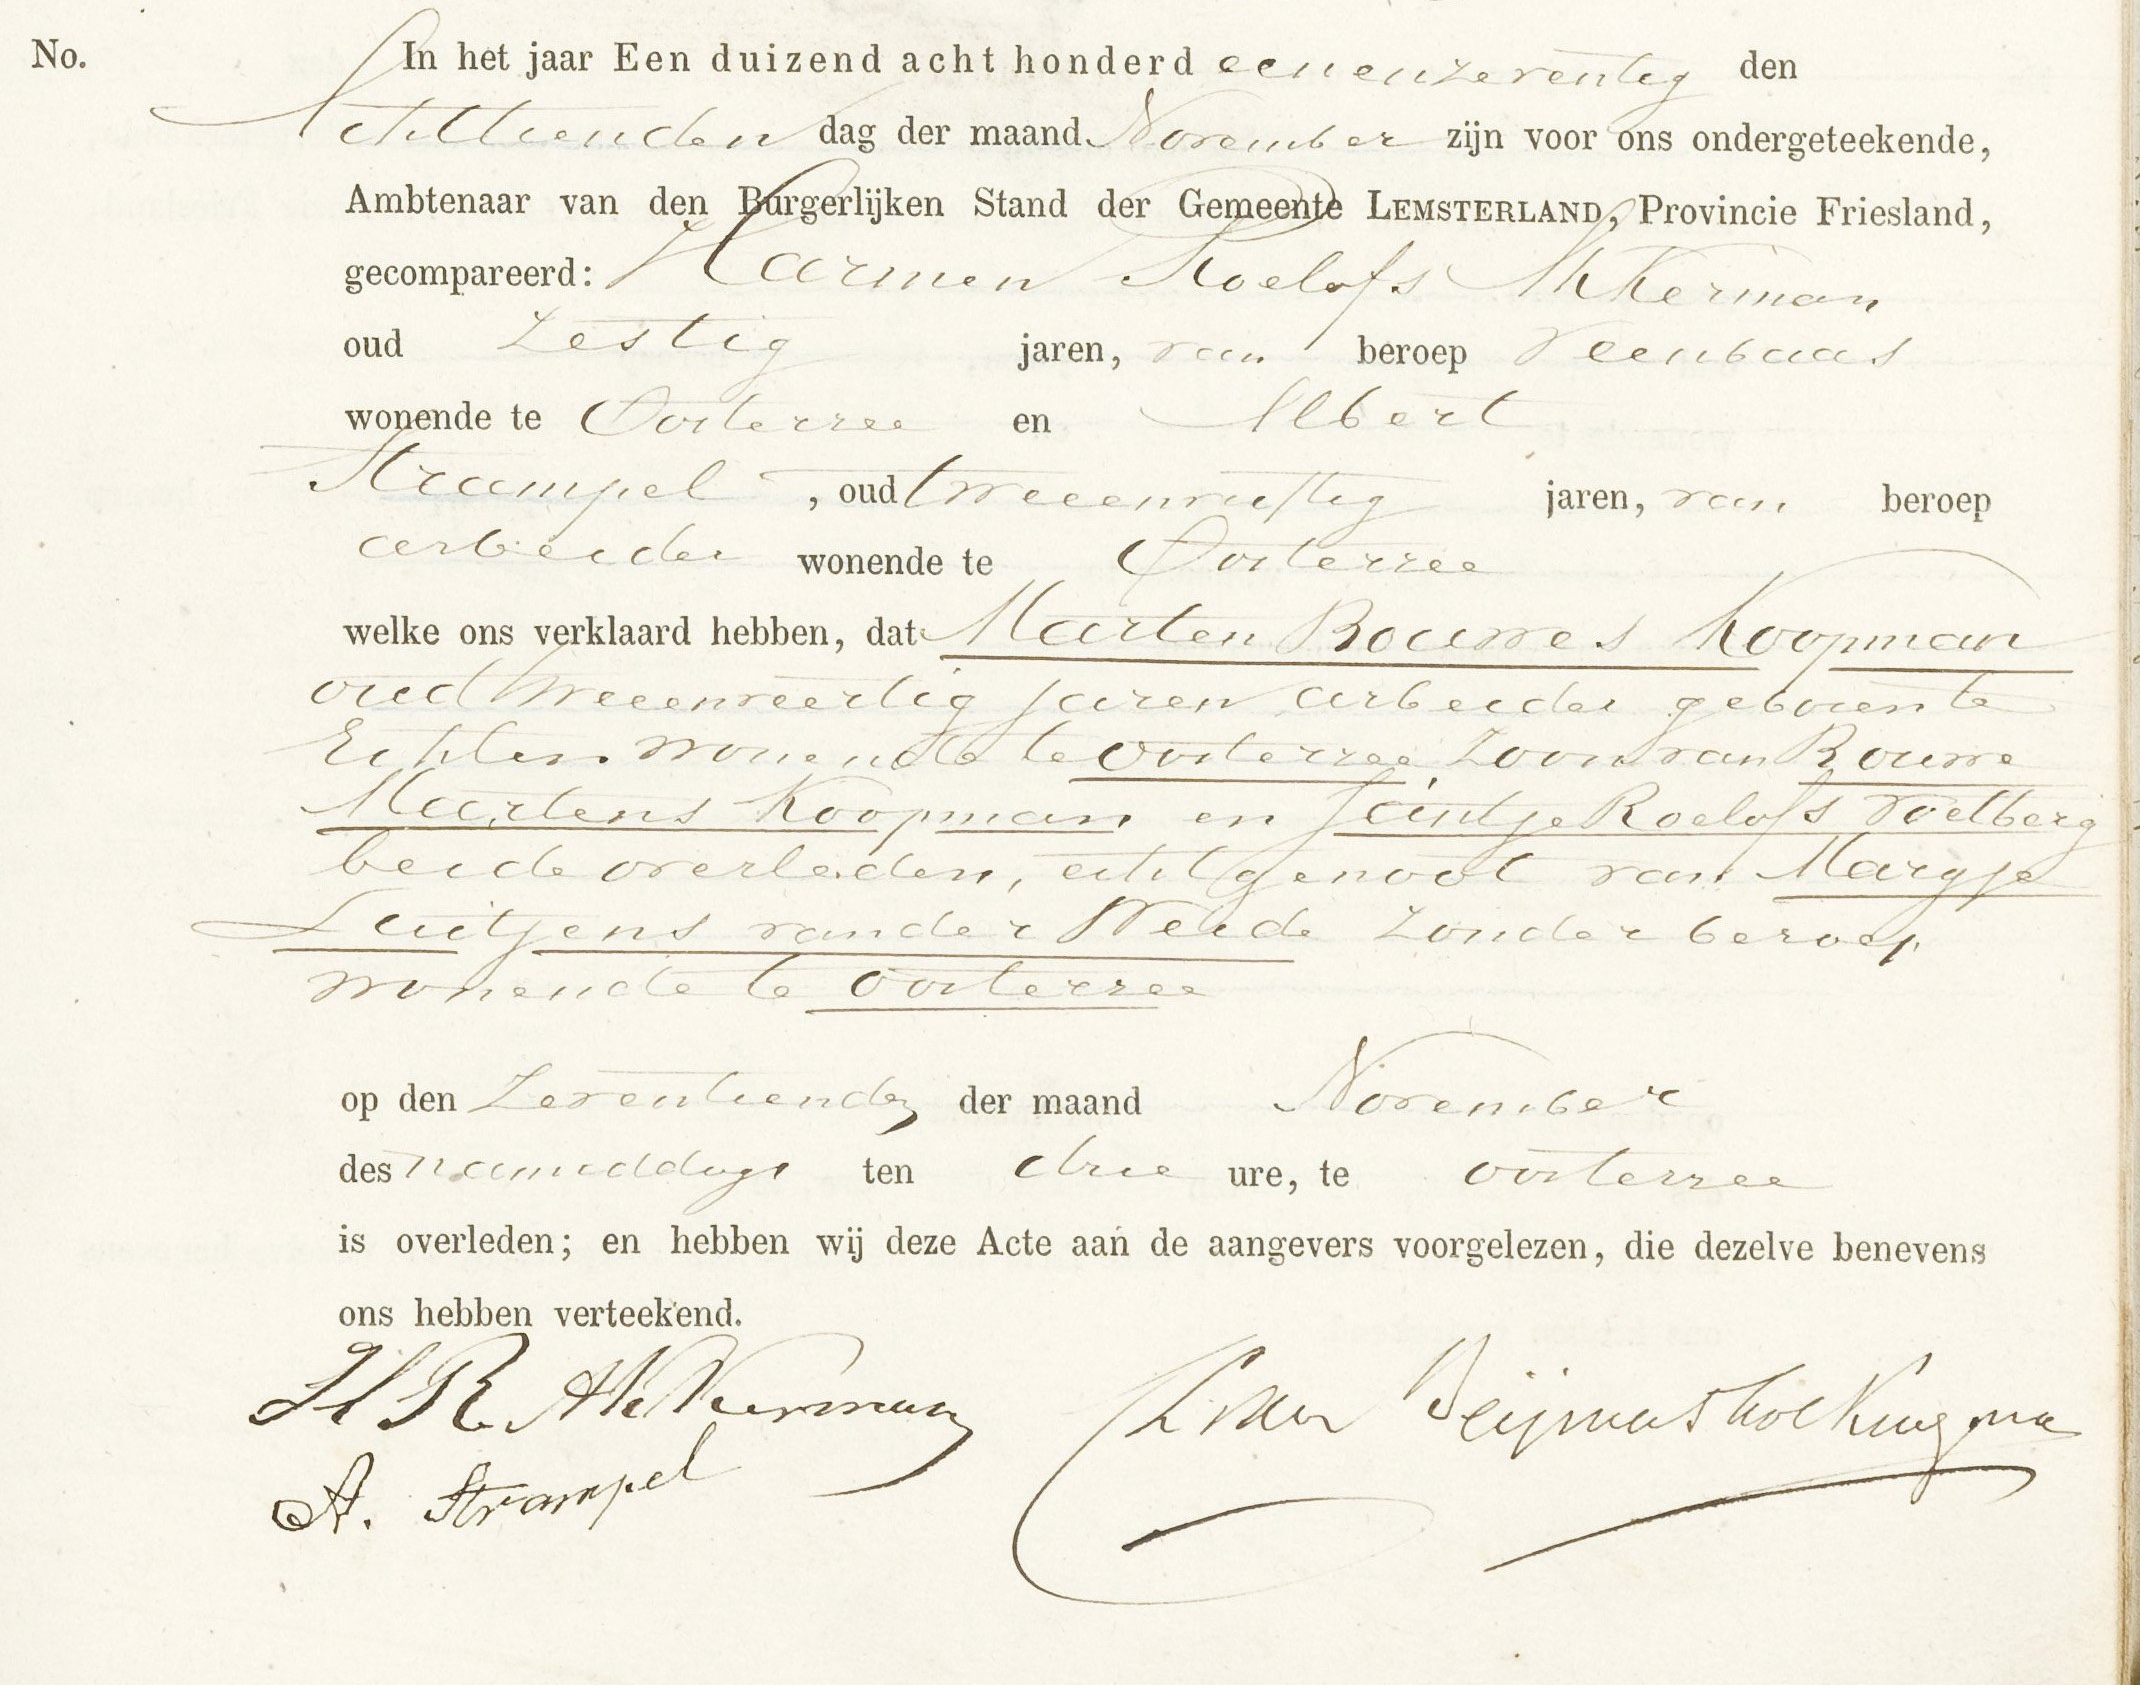 No. In het jaar Een duizend acht honderd eenenzeventig den
Achttienden dag der maand November zijn voor ons ondergeteekende,
Ambtenaar van den Burgerlijken Stand der Gemeente LEMSTERLAND, Provincie Friesland,
gecompareerd: Harmen Roelofs Akkerman
oud Zestig jaren, van beroep Veenbaas
wonende te Oosterzee en Albert
Strampel, oud tweeenvijftig jaren, van beroep
arbeider wonende te Oosterzee
welke ons verklaard hebben, dat Marten Bouwes Koopman
oud tweeenveertig jaren arbeider geboren te
Echten wonende te Oosterzee, Zoon van Bouwe
Martens Koopman en Jeintje Roelofs Voetberg
beide overleden, echtgenoot van Margje
Luitjens van der Weide Zonder beroep
wonende te Oosterzee
op den Zeventienden der maand November
des namiddags ten drie ure, te Oosterzee
is overleden; en hebben wij deze Acte aan de aangevers voorgelezen, die dezelve benevens
ons hebben verteekend.
H R Akkerman
A. Strampel